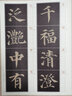 千福清澄
泛灩中有